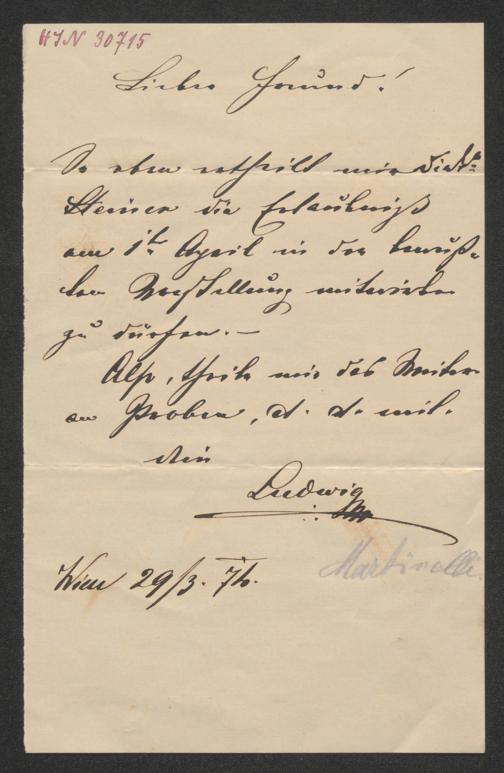 HIN 30715
Lieber Freund!
So eben ertheilt mir Dir.
Steiner die Erlaubniß
am 1t. April in der bewuß-
ten Vorstellung mitwirken
zu dürfen. —
Also, theile mir das Weitere
an Proben, d. d. mit.
dein
Ludwig
Martinelli.
Wien 29/3. 76.